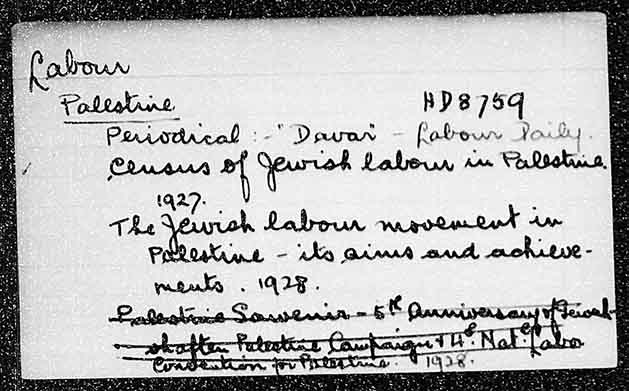 Labour
Palestine HD8759
Periodical :- "Davar" - Labour Daily.
Census of Jewish labour in Palestine.
1927.
The Jewish labour movement in
Palestine - its aims and achieve-
ments. 1928.
Palestine Souvenir - 5th Anniversary of Gewerk-
shaften Palestine Campaign & 4th Nat. Labor
Convention for Palestine. 1928.